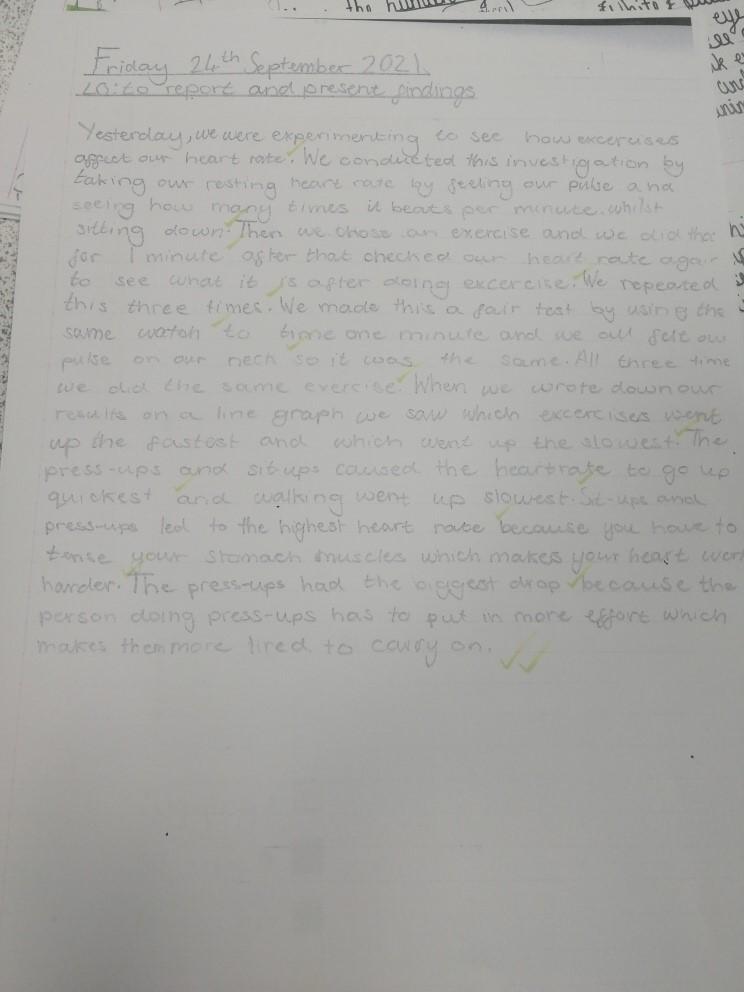 the human
eye
Friday 24th September 2021
LO: to report and present findings
Yesterday, we were experimenting to see how excercises
affect our heart rate. We conducted this investigation by
taking our resting heart rate by feeling our pulse and
seeing how many times it beats per minute. whilst
sitting down. Then we chose an exercise and we did that
for 1 minute after that checked our heart rate again
to see what it is after doing excercise. We repeated
this three times. We made this a fair test by using the
same watch to time one minute and we all felt our
pulse on our neck so it was the same. All three time
we did the same exercise. When we wrote down our
results on a line graph we saw which excercises went
up the fastest and which went up the slowest. The
press-ups and sit ups caused the heartrate to go up
quickest and walking went up slowest. Sit-ups and
press-ups led to the highest heart rate because you have to
tense your stomach muscles which makes your heart work
harder. The press-ups had the biggest drop because the
person doing press-ups has to put in more effort which
makes them more tired to carry on.